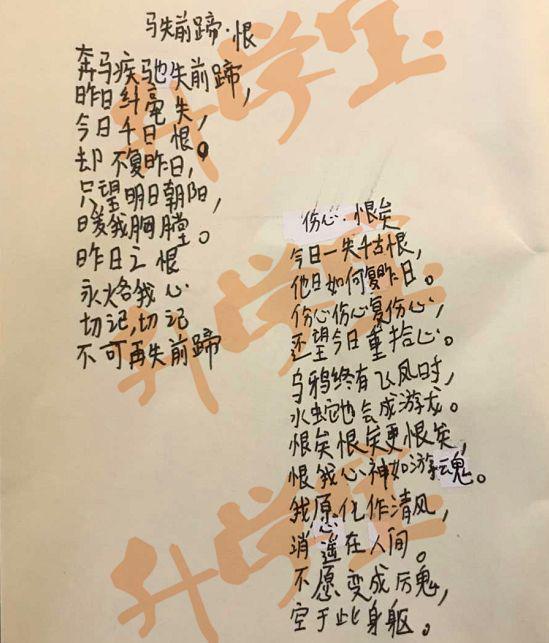 马失前蹄·恨
奔马疾驰失前蹄,
昨日纤毫失,
今日千日恨,
却不复昨日。
只望明日朝阳,
暖我胸膛。
昨日之恨
永烙我心
切记,切记
不可再失前蹄
伤心·恨矣
今日一失千古恨,
他日如何复昨日。
伤心伤心复伤心,
还望今日重拾心。
乌鸦终有飞凤时,
水蛇也会成游龙。
恨矣恨矣更恨矣,
恨我心神如游魂。
我愿化作清风,
消遥在人间。
不愿变成厉鬼,
空于此身躯。
升学宝
升学宝
升学宝